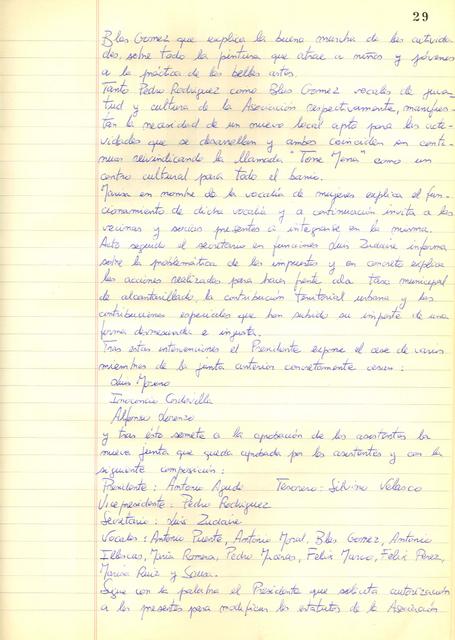 29
Blas Gomez que explica la buena marcha de las activida-
des, sobre todo la pintura que atrae a niños y jóvenes
a la práctica de las bellas artes.
Tanto Pedro Rodriguez como Blas Gomez vocales de juven-
tud y cultura de la Asociación respectivamente, manifies-
tan la necesidad de un nuevo local apto para las acti-
vidades que se desarrollan y ambos coinciden en conti-
nuar reivindicando la llamada "Torre Mora" como un
centro cultural para todo el barrio.
Marisa en nombre de la vocalía de mujeres explica el fun-
cionamiento de dicha vocalía y a continuación invita a las
vecinas y socias presentes a integrarse en la misma.
Acto seguido el secretario en funciones Luis Zudaire informa
sobre la problemática de los impuestos y en concreto explica
las acciones realizadas para hacer frente a la tasa municipal
de alcantarillado, la contribución territorial urbana y las
contribuciones especiales que han subido su importe de una
forma desmesurada e injusta.
Tras estas intervenciones el Presidente expone el cese de varios
miembros de la junta anterior concretamente cesan:
Luis Moreno
Inocencio Cordovilla
Alfonso Lorenzo
y tras ésto somete a la aprobación de los asistentes la
nueva junta que queda aprobada por los asistentes y con la
siguiente composición:
Presidente: Antonio Tesorero: Silvino Velasco
Vicepresidente: Pedro Rodriguez
Secretario: Luis Zudaire
Vocales: Antonio Puente, Antonio Moral, Blas Gomez, Antonio
Illescas, Maria Romera, Pedro Felix Marco, Felix Perez,
Marisa Ruiz y Sousa.
Sigue con la palabra el Presidente que solicita autorización
a los presentes para modificar los estatutos de la Asociación